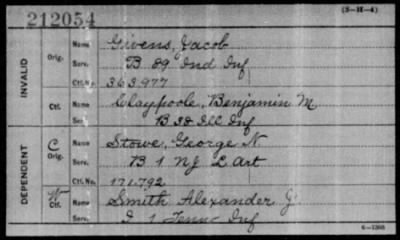 212054 (3-H-4)
INVALID
Orig. Name Givens, Jacob
Serv. B 89 Ind Inf
Ctf. No. 363.977
Ctf. Name Claypoole, Benjamin M
Ser B 38 Ill Inf
DEPENDENT
C Orig. Name Stowe, George N
Serv. B 1 NJ L Art
Ctf. No. 171.792
W Ctf. Name Smith Alexander J.
Serv. I 1 Tenn Inf